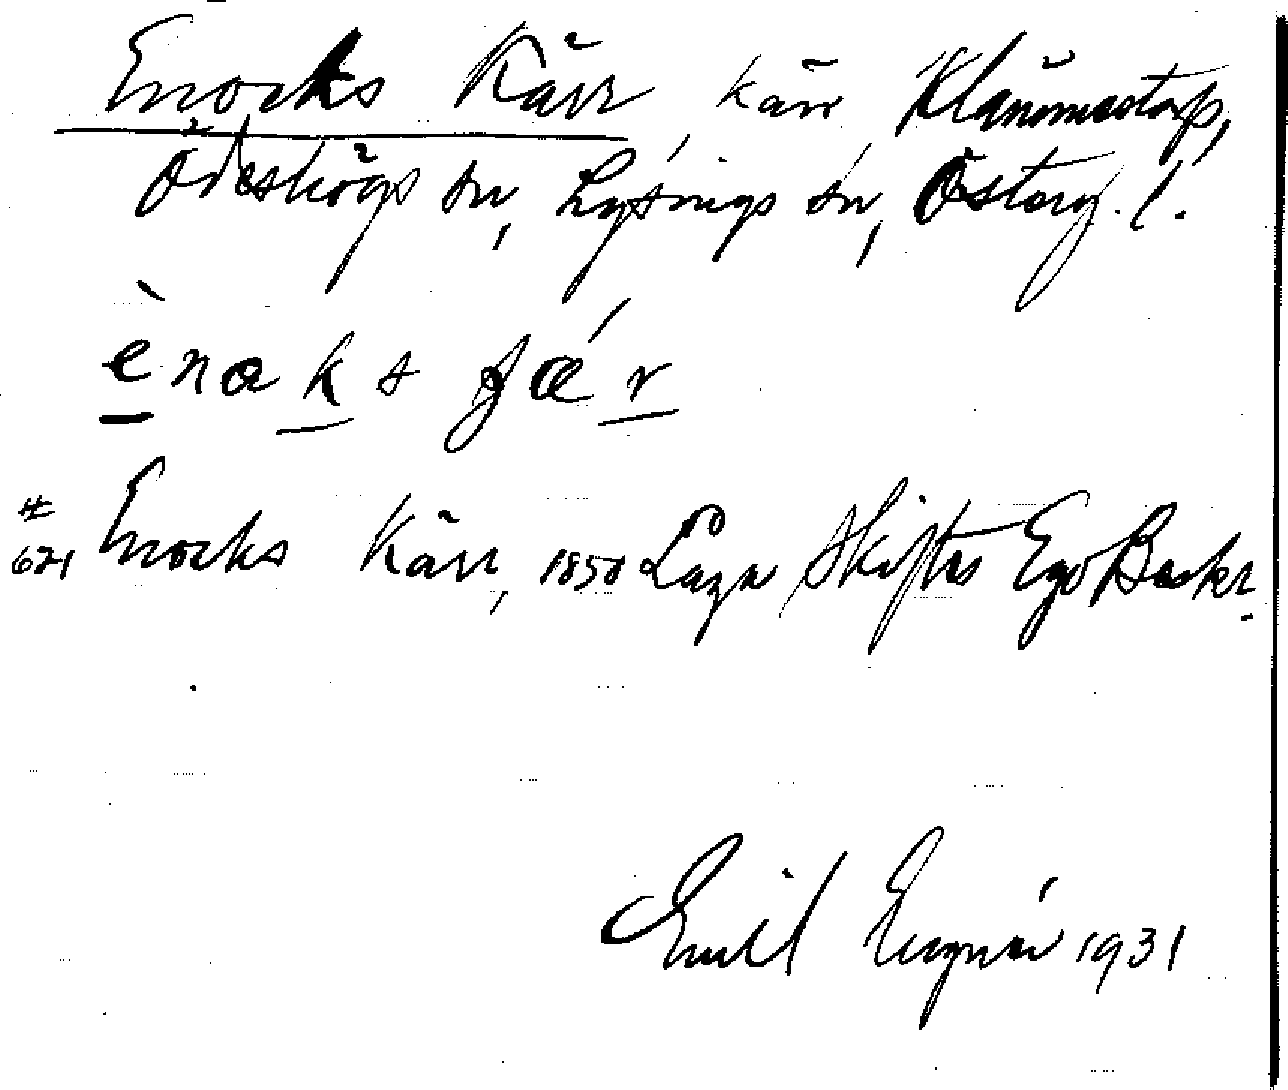 Enocks Kärr, kärr Klämmestorp,
Ödeshögs sn, Lysings hd, Österg. l.
ènaks ʃǽr
#
621 Enocks Kärr, 1858 Laga Skiftes Ego Beskr.
Emil 1931